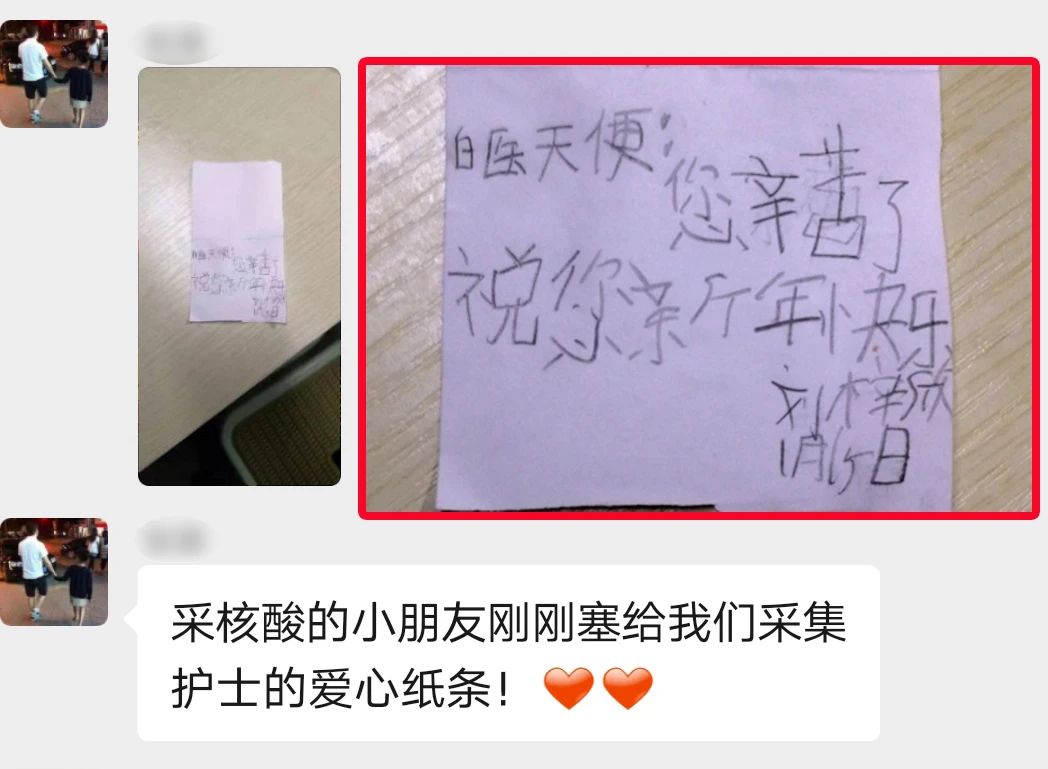 白医天便：
您辛苦了
祝您亲斤年快乐
刘梓欣
1月16日
采核酸的小朋友刚刚塞给我们采集
护士的爱心纸条！❤️❤️